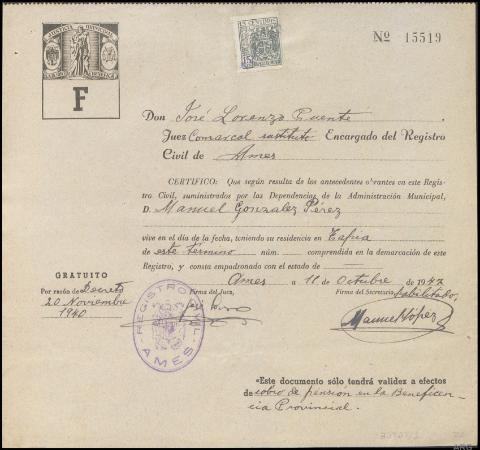 JUSTICIA MUNICIPAL
F
Nº 15519
Don José Lorenzo Puente
Juez Comarcal sustituto Encargado del Registro
Civil de Ames
CERTIFICO: Que según resulta de los antecedentes obrantes en este Regis-
tro Civil, suministrados por las Dependencias de la Administración Municipal,
D. Manuel Gonzalez Pérez
vive en el día de la fecha, teniendo su residencia en Tapia
de este término núm. comprendida en la demarcación de este
Registro, y consta empadronado con el estado de
Ames a 11 de Octubre de 1947
GRATUITO
Por razón de Decreto
20 Noviembre
1940
Firma del Juez,
Firma del Secretario habilitado,
Manuel López
REGISTRO CIVIL
AMES
Este documento sólo tendrá validez a efectos
de cobro de pensión en la Beneficen-
cia Provincial.
ARG